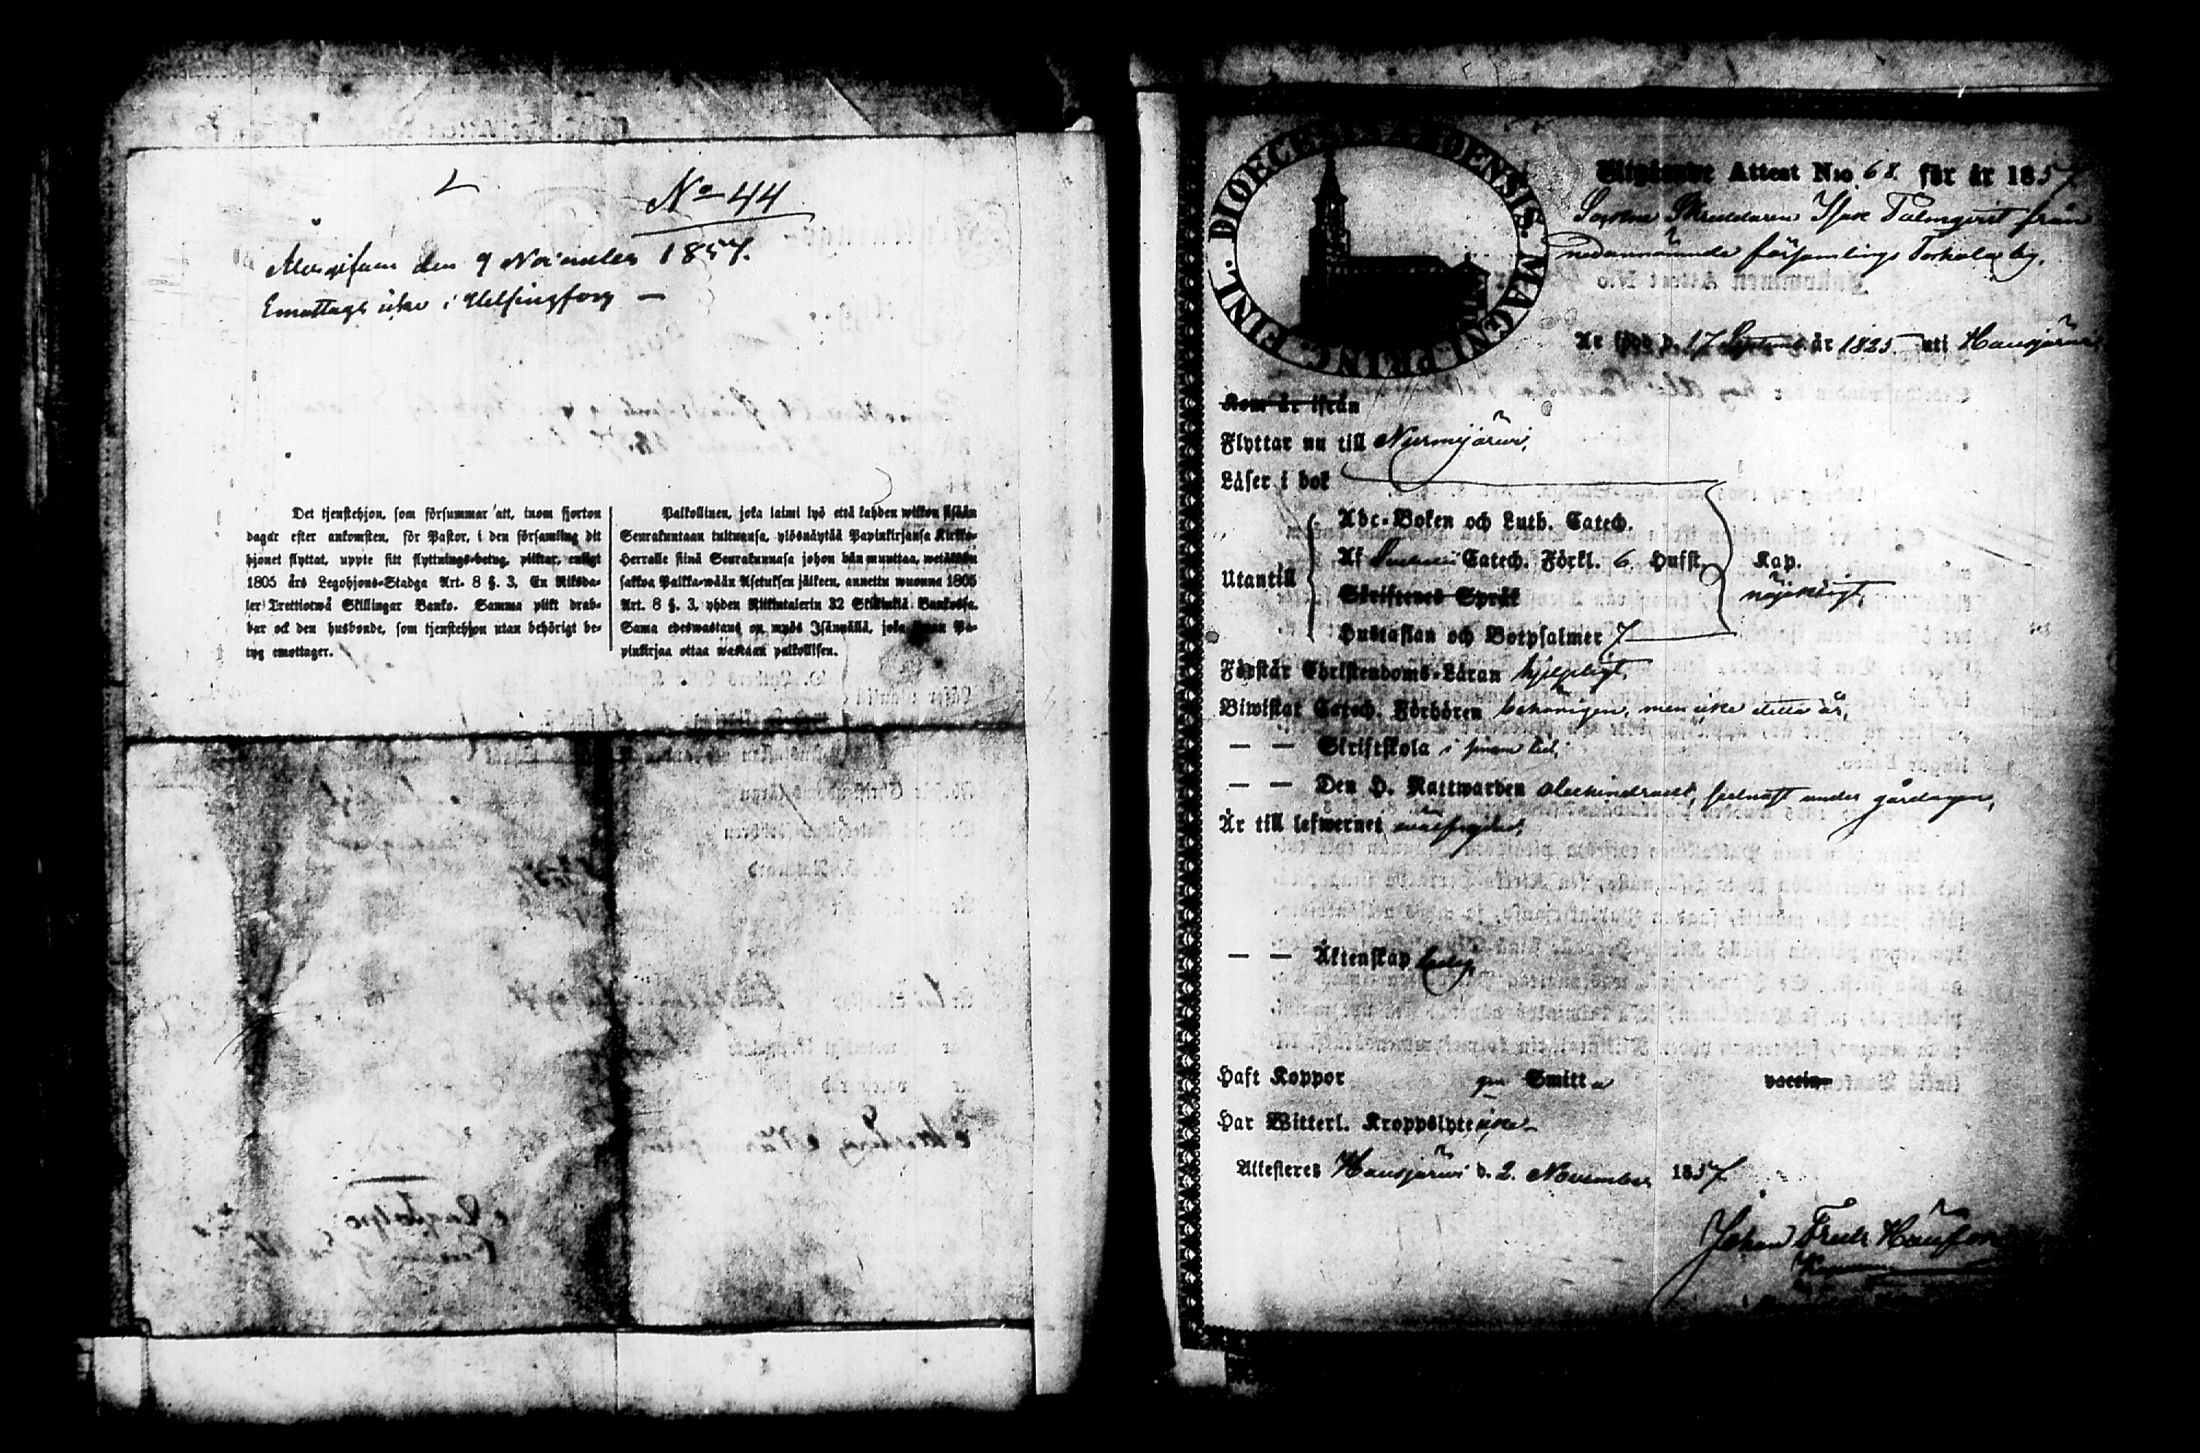 No 44
den 9 November 1857.
Emottags icke i Helsingfors —
Det tjenstehjon, som försummar att, inom fjorton
dagar efter ankomsten, för Pastor, i den församling dit
hjonet flyttat, uppte sitt flyttnings-betyg, pliktar, enligt
1805 års Legohjons-Stadga Art. 8 §. 3, En Riksda-
ler Trettiotwå Skillingar Banko. Samma plikt drab-
bar ock den husbonde, som tjenstehjon utan behörigt be-
tyg emottager.
Palkollinen, joka laimi lyö että kahden wiikon sisään
Seurakuntaan tultuansa, ylösnäyttää Papinkirjansa Kirkko-
Herralle siinä Seurakunnasa johon hän muuttaa, wetäköön
sakkoa Palkka-wään Asetuksen jälkeen, annettu wuonna 1805
Art. 8 §. 3, yhden Riikintalerin 32 Skillinkiä Bankossa.
Sama edeswastaus on myös Isännällä, joka ilman Pa-
pinkirjaa ottaa wastaan palkollisen.
DIOECESIS ABOENSIS. MAGNI PRINC. FINL.
Utgående Attest N:o 68. för år 1857.
Sockne Skräddaren Isak Palmqvist från
nedannämnde församlings Torhola by,
Är född d. 17 September år 1825 uti Hausjärvi
Kom år ifrån
Flyttar nu till Nurmijärvi,
Läser i bok
Utantill
Abc-Boken och Luth. Catech.
Af Catech. Förkl. 6 Hufst. Kap.
Skriftenes Språk
nöjeligt,
Hustaflan och Botpsalmer 7
Förstår Christendoms-Läran hjelpligt,
Biwistat Catech. Förhören behörigen, men icke detta år,
— — Skriftskola i sinom tid,
— — Den H. Nattwarden oförhindradt, sednast under gårdagen,
Är till lefwernet wälfrejdad,
— — Äktenskap ledig,
Haft Koppor gm Smitta vaccin
Har Witterl. Kroppslyte icke
Attesteras Hausjärvi d. 2. November 1857.
Johan Fredr